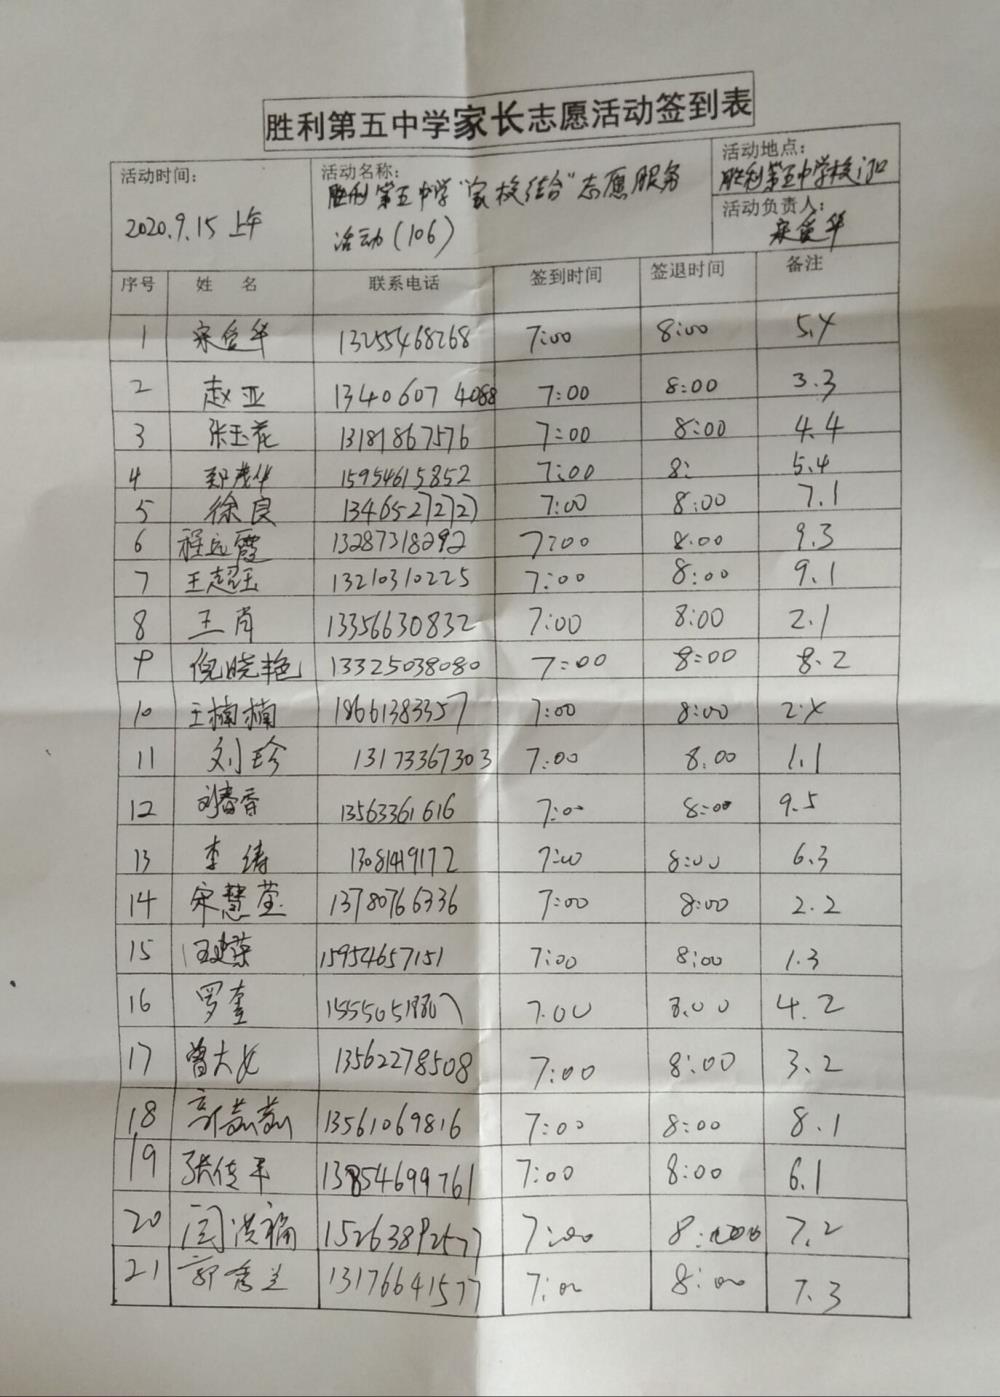 胜利第五中学家长志愿活动签到表
活动时间: 2020.9.15 上午
活动名称: 胜利第五中学"家校结合"志愿服务
活动(106)
活动地点: 胜利第五中学校门口
活动负责人:
序号 姓 名 联系电话 签到时间 签退时间 备注
1 13255468268 7:00 8:00 5.4
2 赵亚 13406074088 7:00 8:00 3.3
3 张玉花 13181867576 7:00 8:00 4.4
4 郑茂华 15954615852 7:00 8: 5.4
5 徐良 13465272727 7:00 8:00 7.1
6 程远霞 13287318292 7:00 8.00 9.3
7 王超玉 13210310225 7:00 8:00 9.1
8 王肖 13356630832 7:00 8:00 2.1
9 倪晓艳 13325038080 7:00 8:00 8.2
10 王楠楠 18661383357 7:00 8:00 2.4
11 刘珍 13173367303 7:00 8.00 1.1
12 刘春香 13563361616 7:00 8:00 9.5
13 李涛 13081419172 7:00 8:00 6.3
14 宋慧莹 13780766336 7:00 8:00 2.2
15 15954657151 7:00 8:00 1.3
16 罗奎 7.00 8.00 4.2
17 13562278508 7:00 8:00 3.2
18 13561069816 7:00 8:00 8.1
19 张传平 13854699761 7:00 8:00 6.1
20 闫洪福 15263892577 7:00 8:00 7.2
21 郭秀兰 13176641577 7:00 8:00 7.3